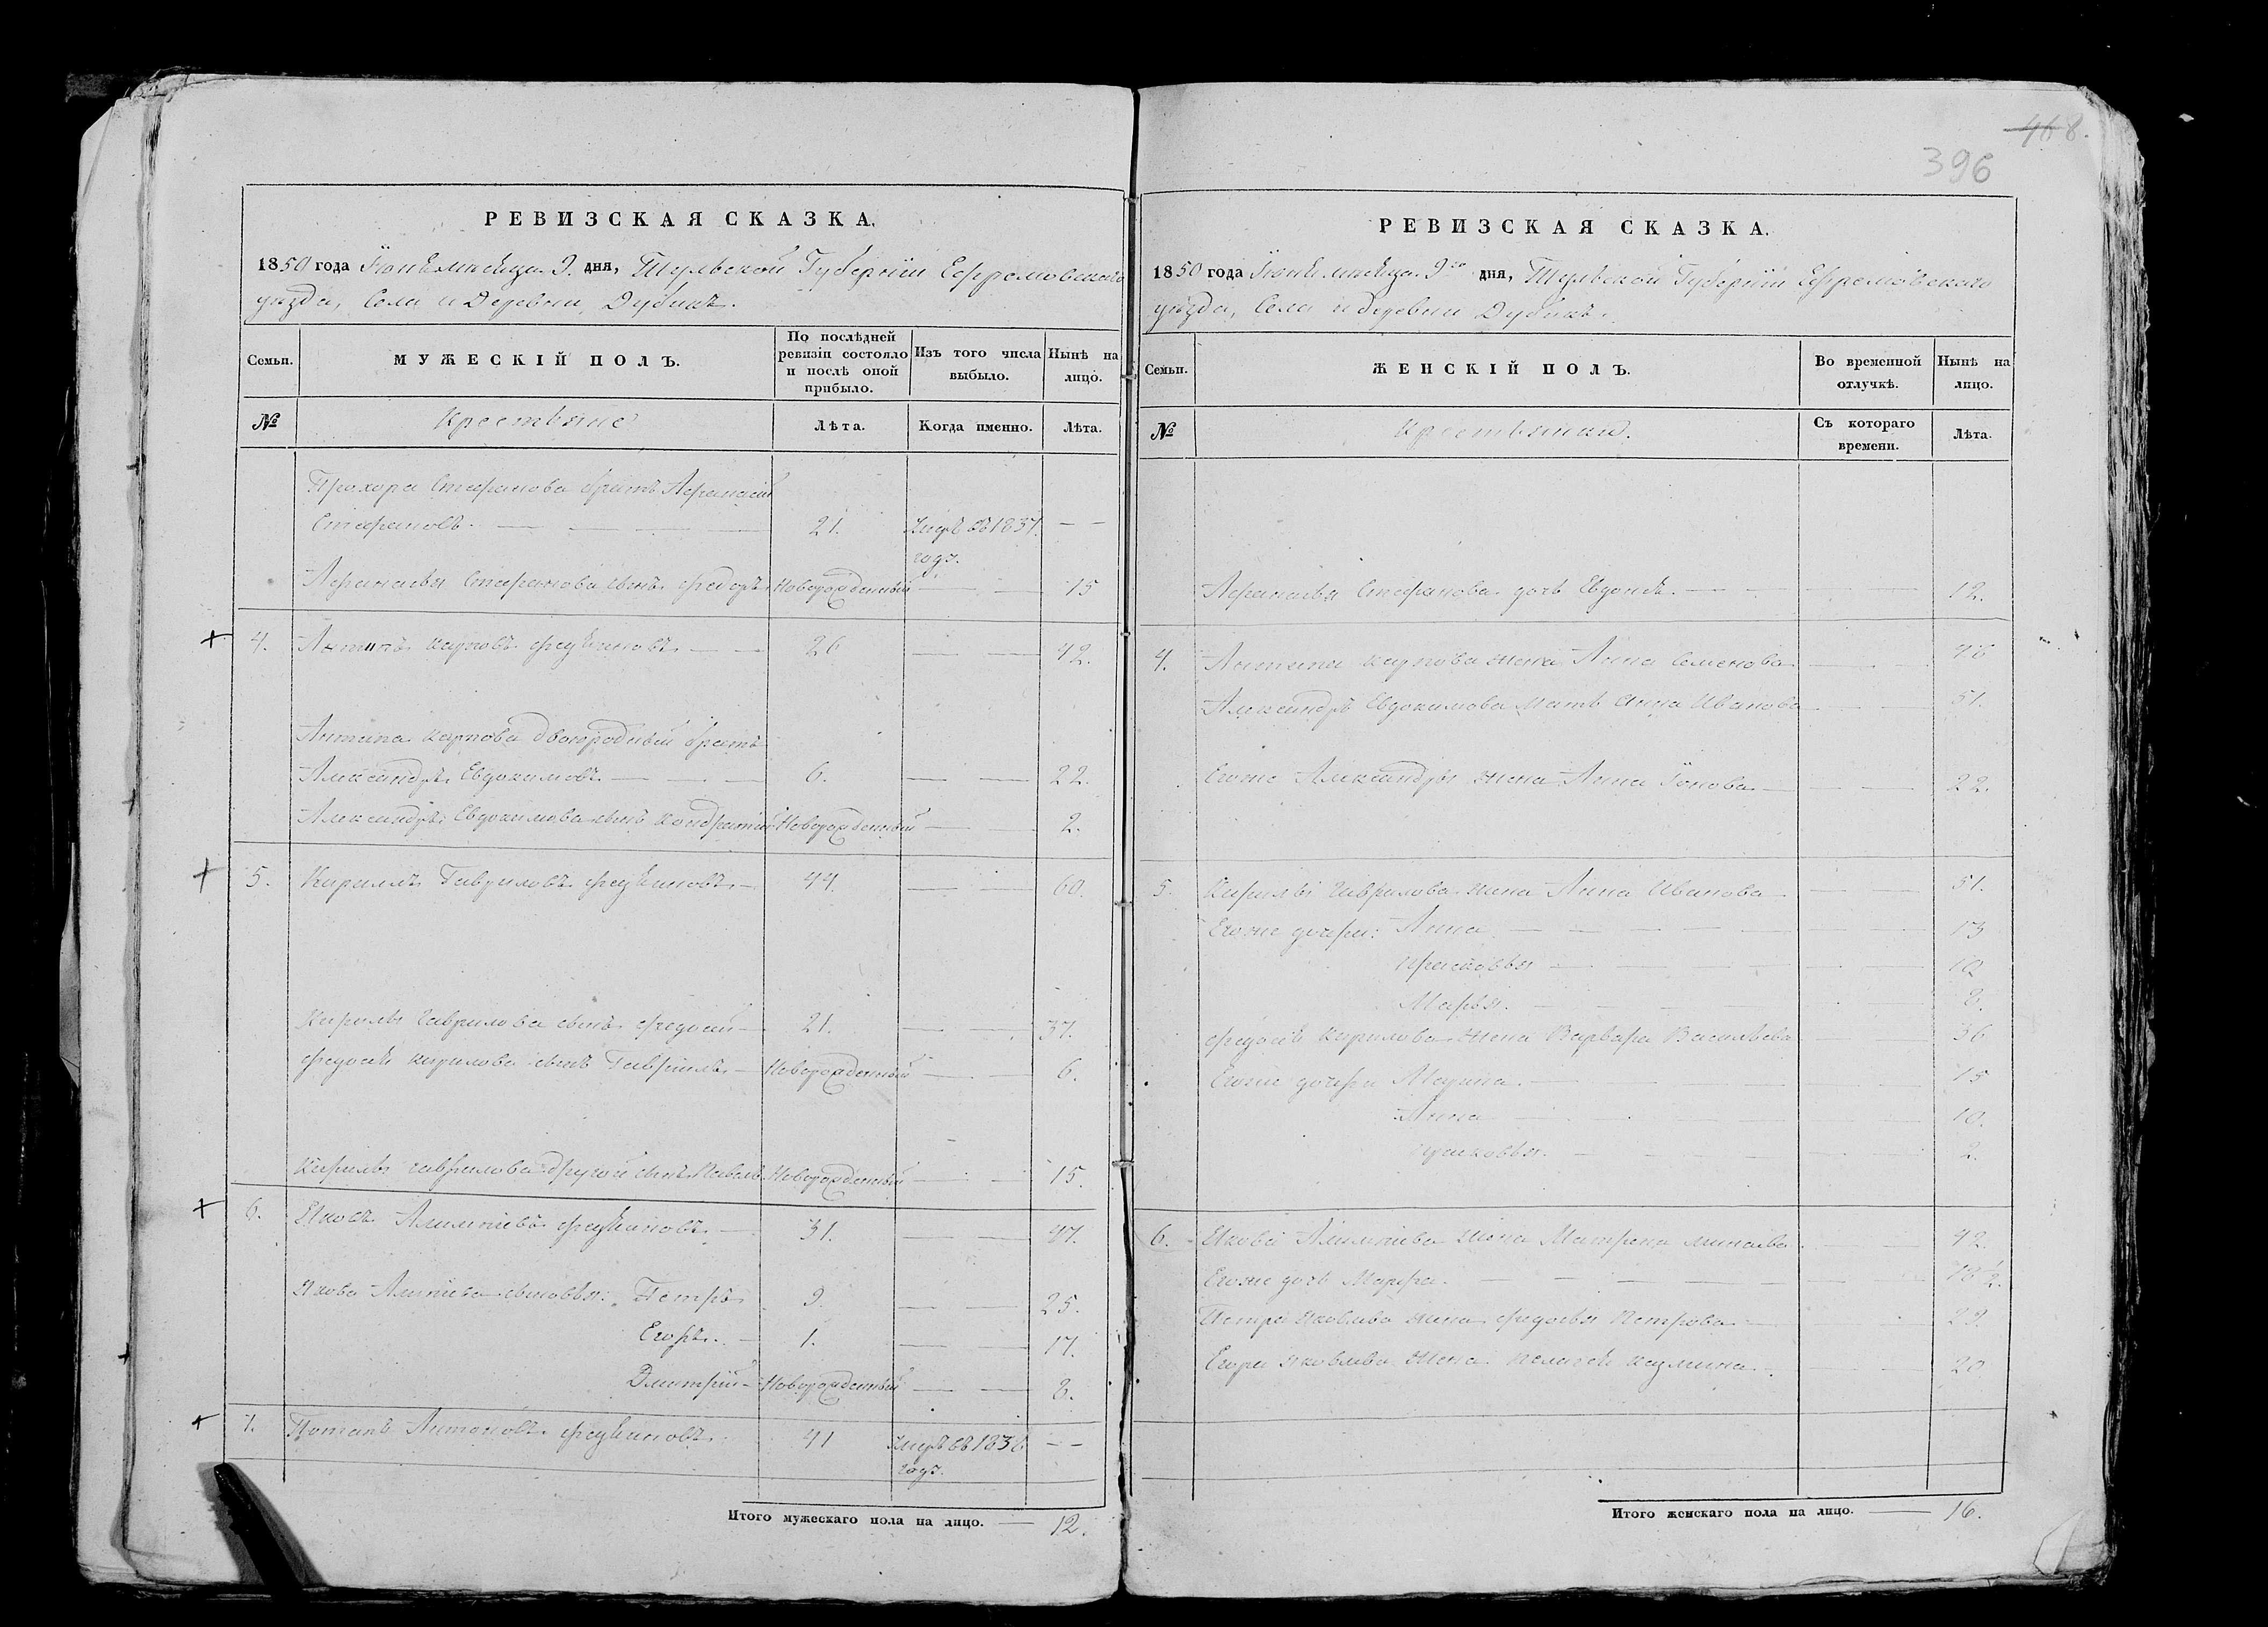 468.
396
РЕВИЗСКАЯ СКАЗКА.
1850 года Іюня месяца 9. дня, Тульской Губерніи Ефремовскаго
уѣзда, Села и Деревни Дубикъ.
Семьи. МУЖЕСКІЙ ПОЛЪ. По послѣдней ревизіи состояло и послѣ оной прибыло. Изъ того числа выбыло. Нынѣ на лицо.
№ Крестьяне Лѣта. Когда именно. Лѣта.
Прохора Стефанова братъ Афанасій
Стефановъ. 21. умеръ въ 1837.
годѣ.
Афанасья Стефанова сынъ Федоръ Новорожденный 15
4. Антипъ Карповъ 26 42.
Антипа Карпова двоюродный братъ
Александръ Евдокимовъ. 6. 22.
Александра Евдокимова сынъ Кондратій Новорожденный 2.
5. Кирилъ Гавриловъ 44. 60.
Кирилы Гаврилова сынъ Федосѣй 21. 37.
Федосѣя Кирилова сынъ Гаврилъ Новорожденный 6.
Кирилы Гаврилова другой сынъ Павелъ Новорожденный 15.
6. Яковъ Алимпіевъ 31. 47.
Якова Алимпіева сыновья: Петръ 9. 25.
Егоръ. 1. 17.
Дмитрій Новорожденный 8.
7. Потапъ Антоновъ 41 умеръ въ 1836
годѣ.
Итого мужескаго пола на лицо. 12.
РЕВИЗСКАЯ СКАЗКА.
1850 года Іюня месяца 9го дня, Тульской Губерніи Ефремовскаго
уѣзда, Села и деревни Дубикъ.
Семьи. ЖЕНСКІЙ ПОЛЪ. Во временной отлучкѣ. Нынѣ на лицо.
№ Крестьянки. Съ котораго времени. Лѣта.
Афанасья Стефанова дочь Евдокѣя 12.
4. Антипа Карпова жена Анна Семенова
Александра Евдокимова мать Анна Иванова 51.
Егоже Александры жена Анна Іонова 22.
5. Кирилы Гаврилова жена Анна Иванова 51.
Егоже дочери: Анна 13
Прасковья
Марья. 8.
Федосѣя Кирилова жена Варвара Васильева 36
Егоже дочери 15
Анна 10.
2.
6. Якова Алимпіева жена Матрена Минаева 42.
Егоже дочь Марфа.
Петра Яковлева жена Федосья Петрова 23.
Егора Яковлева жена Пелагея Кузмина. 20
Итого женскаго пола на лицо. 16.